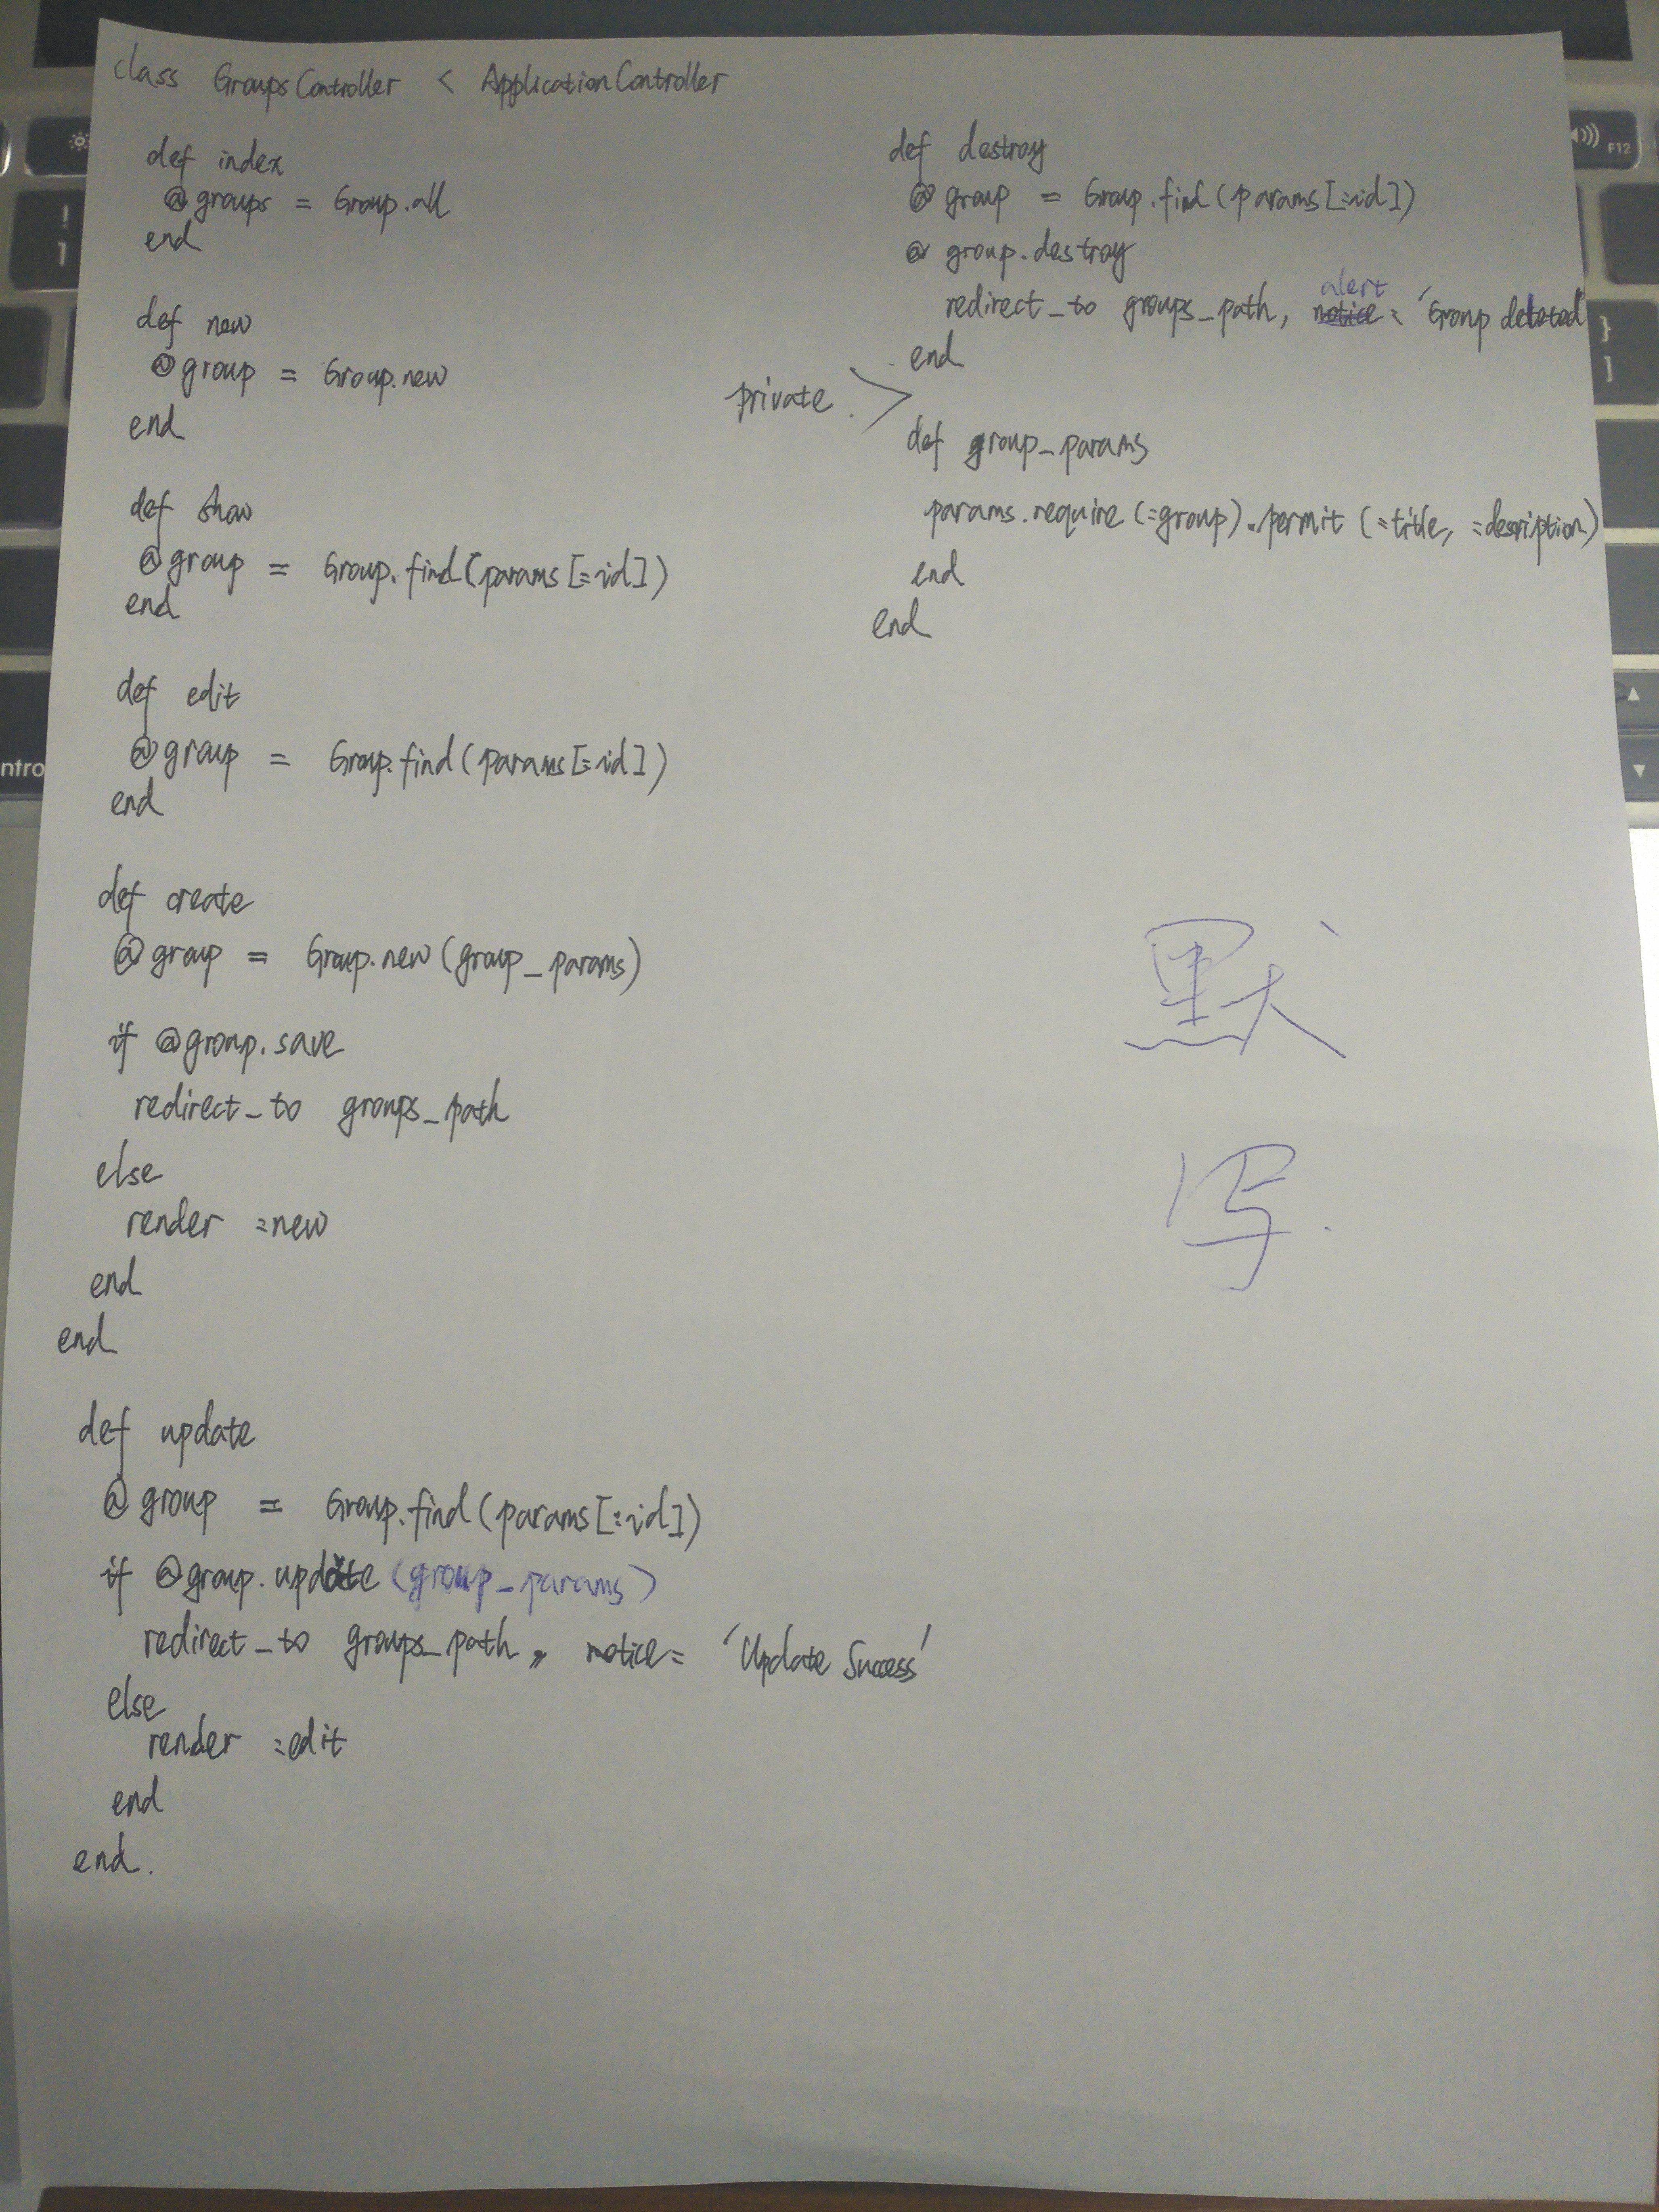 class GroupsController < ApplicationController
def index
@groups = Group.all
end
def new
@group = Group.new
end
def show
@group = Group.find(params[:id])
end
def edit
@group = Group.find(params[:id])
end
def create
@group = Group.new(group_params)
if @group.save
redirect_to groups_path
else
render :new
end
end
def update
@group = Group.find(params[:id])
if @group.update (group_params)
redirect_to groups_path, notice: 'Update Success'
else
render :edit
end
end.
def destroy
@group = Group.find(params[:id])
@group.destroy
alert
redirect_to groups_path, notice: 'Group deleted
end
private
def group_params
params.require(:group).permit(:title, :description)
end
end
默
写.
F12
!
1
}
]
ntro